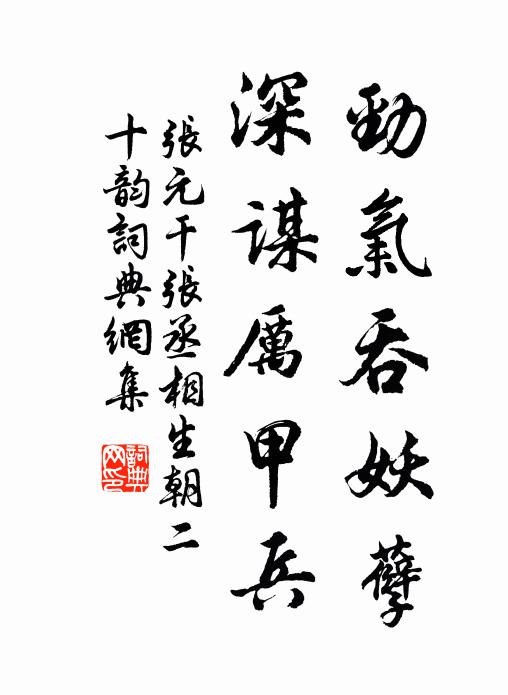 勁氣吞妖孽
深謀厲甲兵
張元干張丞相生朝二
十韵詞典網集
詞典网印